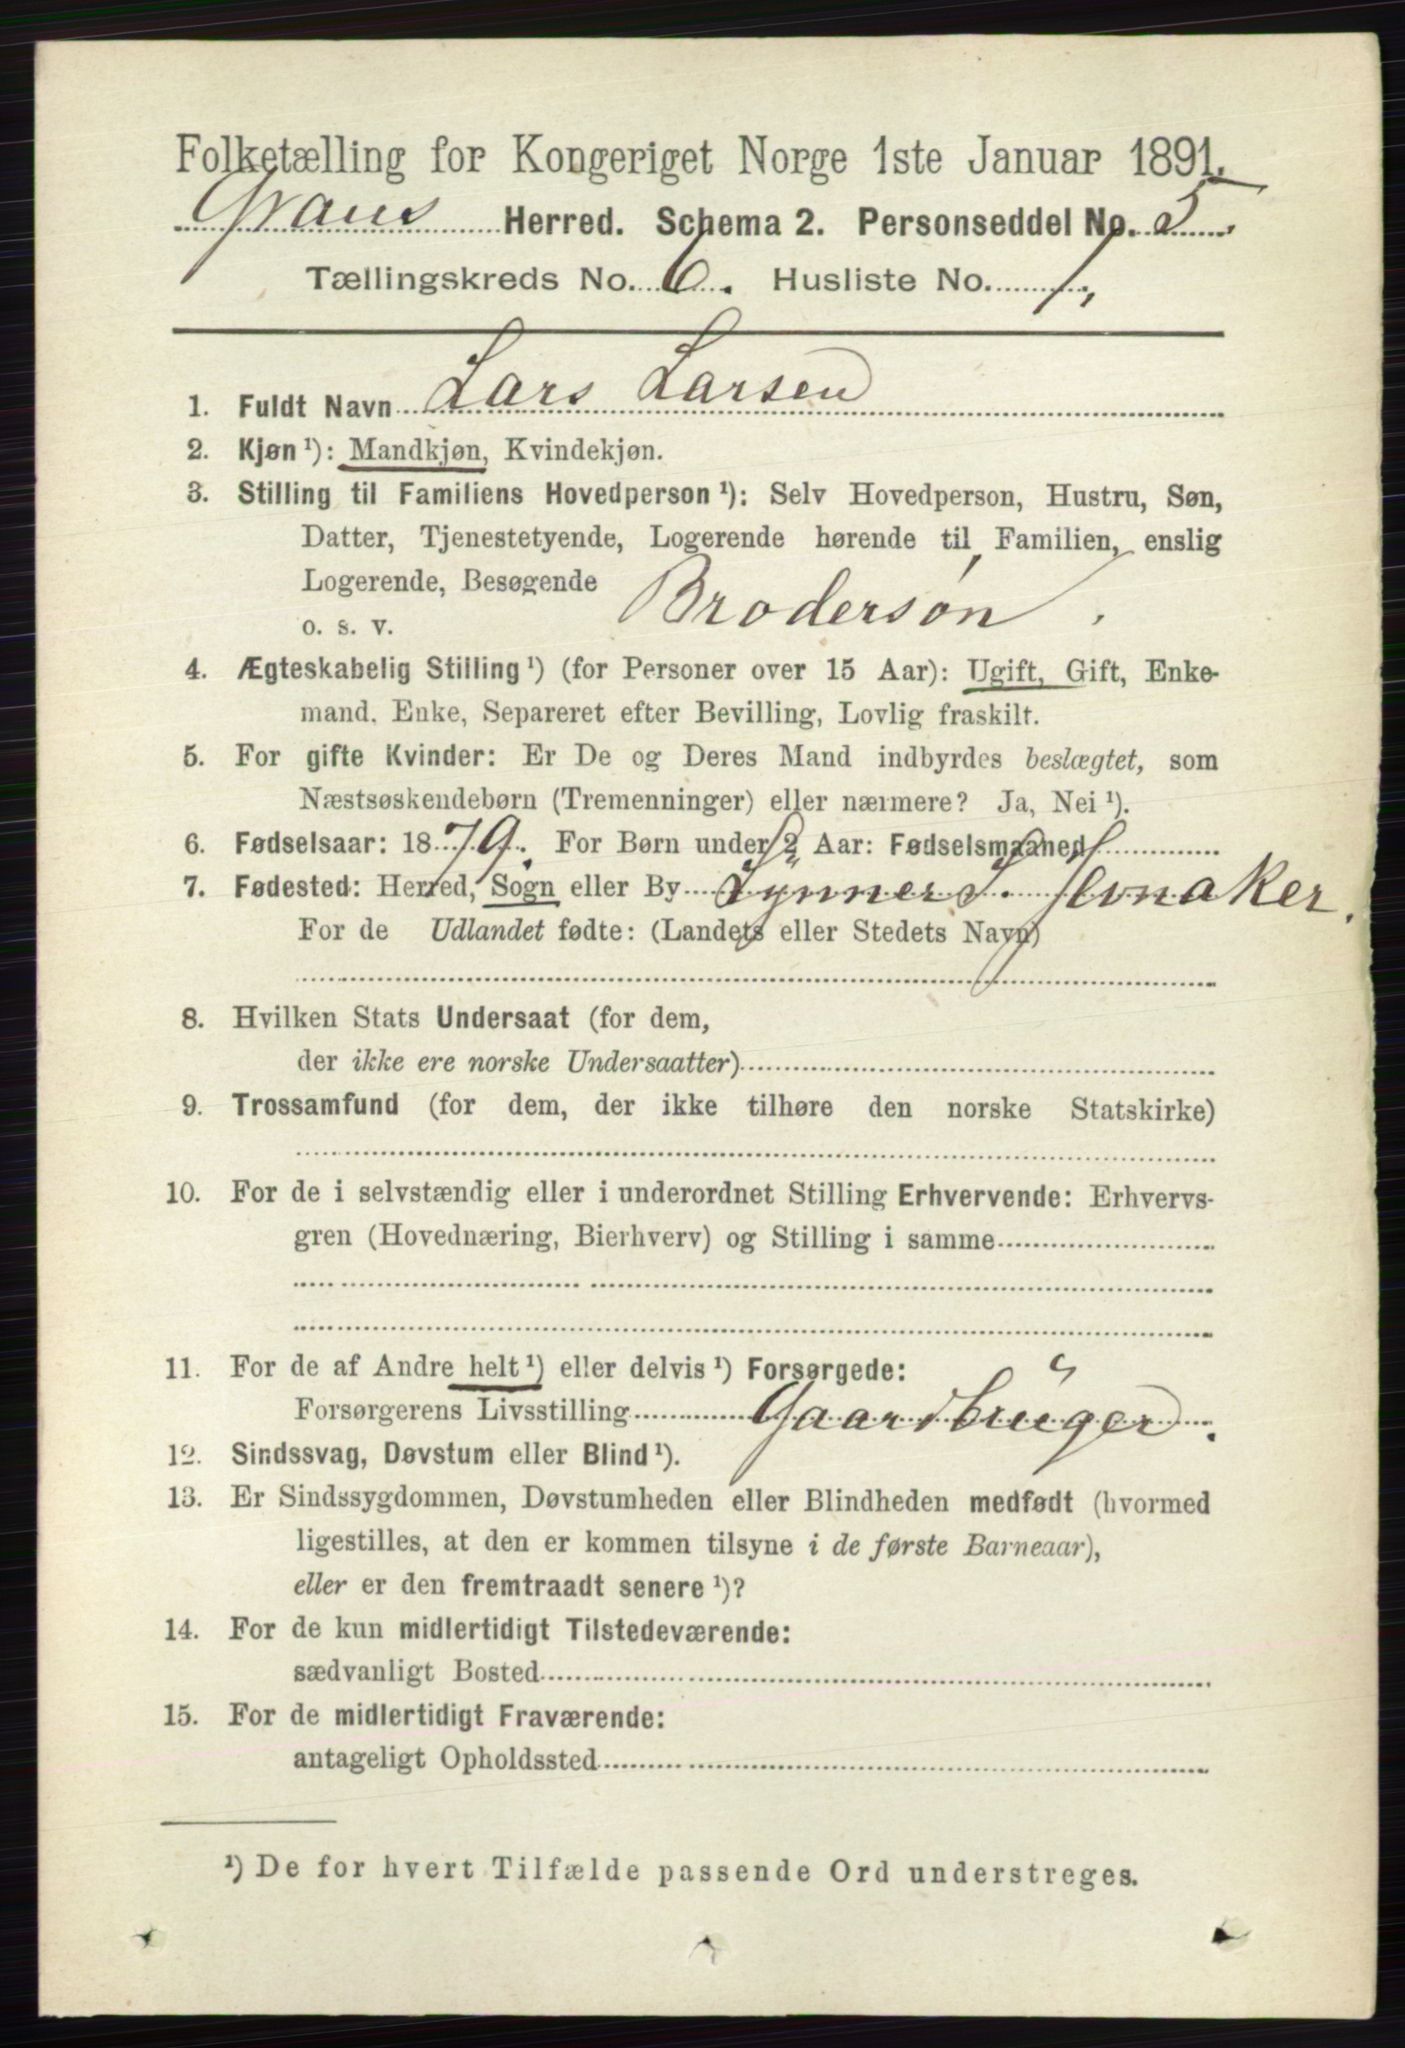 Folketælling for Kongeriget Norge 1ste Januar 1891.
Grans Herred. Schema 2. Personseddel No. 5.
Tællingskreds No. 6. Husliste No. 1,
1. Fuldt Navn Lars Larsen
2. Kjøn ¹): Mandkjøn, Kvindekjøn.
3. Stilling til Familiens Hovedperson ¹): Selv Hovedperson, Hustru, Søn,
Datter, Tjenestetyende, Logerende hørende til Familien, enslig
Logerende, Besøgende Brodersøn.
o. s. v.
4. Ægteskabelig Stilling ¹) (for Personer over 15 Aar): Ugift, Gift, Enke-
mand, Enke, Separeret efter Bevilling, Lovlig fraskilt.
5. For gifte Kvinder: Er De og Deres Mand indbyrdes beslægtet, som
Næstsøskendebørn (Tremenninger) eller nærmere? Ja, Nei ¹).
6. Fødselsaar: 1879. For Børn under 2 Aar: Fødselsmaaned
7. Fødested: Herred, Sogn eller By Lynners. Jevnaker.
For de Udlandet fødte: (Landets eller Stedets Navn)
8. Hvilken Stats Undersaat (for dem,
der ikke ere norske Undersaatter)
9. Trossamfund (for dem, der ikke tilhøre den norske Statskirke)
10. For de i selvstændig eller i underordnet Stilling Erhvervende: Erhvervs-
gren (Hovednæring, Bierhverv) og Stilling i samme
11. For de af Andre helt ¹) eller delvis ¹) Forsørgede:
Forsørgerens Livsstilling Gaardbruger.
12. Sindssvag, Døvstum eller Blind ¹).
13. Er Sindssygdommen, Døvstumheden eller Blindheden medfødt (hvormed
ligestilles, at den er kommen tilsyne i de første Barneaar),
eller er den fremtraadt senere ¹)?
14. For de kun midlertidigt Tilstedeværende:
sædvanligt Bosted
15. For de midlertidigt Fraværende:
antageligt Opholdssted
¹) De for hvert Tilfælde passende Ord understreges.